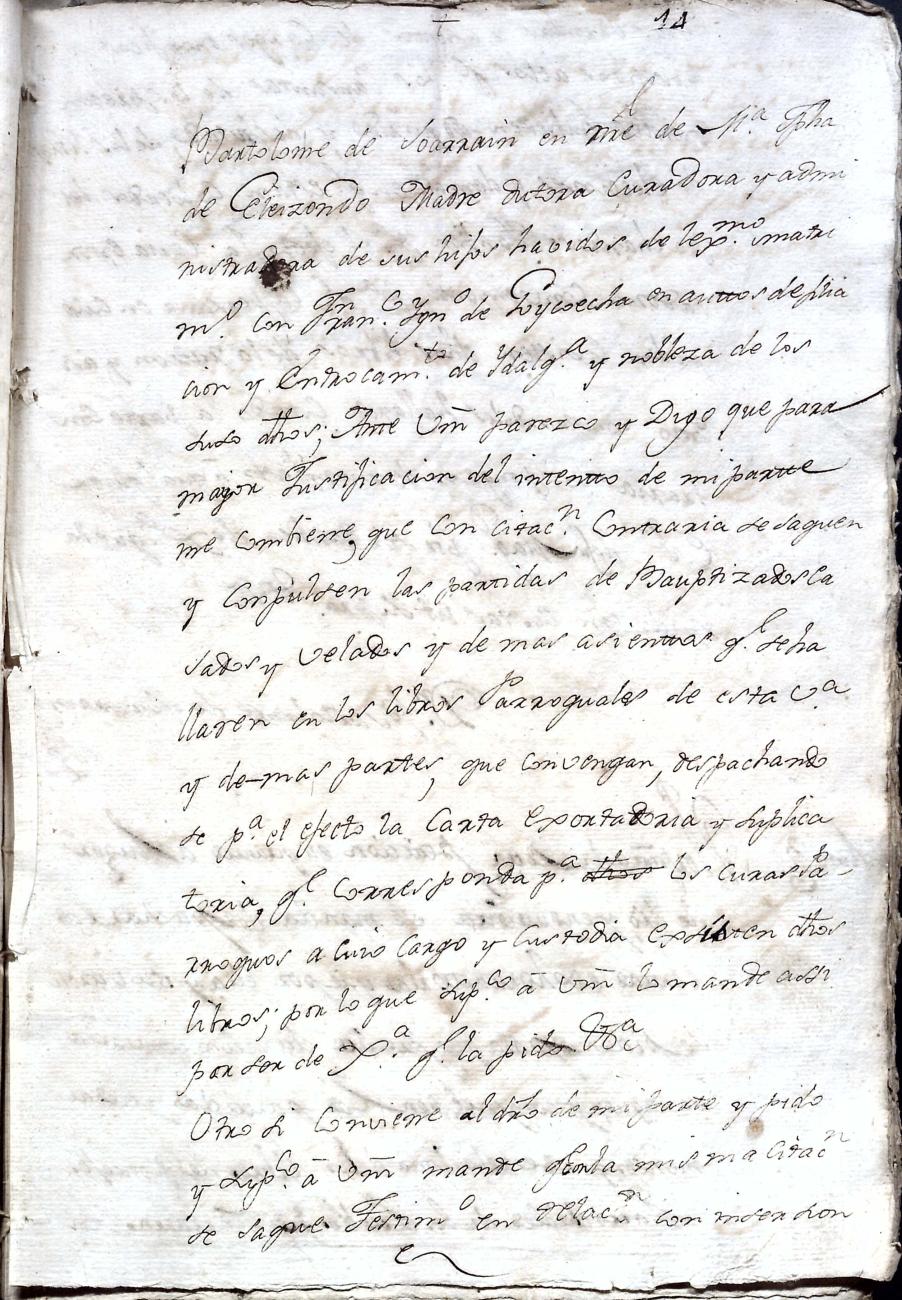 14
Bartolome de Ybarrain en nre de M.ª Jpha
de Eleizondo Madre tutora Curadora y admi
nistradora de sus hijos havidos de lexmo matri
m.º con Fran.co Ygn.º de Goycoechea en auttos de filia
cion y Entrocam.to de Ydalg.ª y nobleza de los
suso dhos; Ante Vm parezco y Digo que para
mayor Justificacion del intentto de mi partte
me combiene, que con citac.n Contraria se saquen
y Conpulsen las partidas de Bauptizados Ca
sados y velados y demas asienttos q.e se ha
llaren en los libros Parroquales de esta v.ª
y demas partes, que convengan, despachando
se p.ª el efecto la Carta Exortatoria y suplica
toria, q.e corresponda p.ª dhos los curas Pa-
rroquos a cuio cargo y Custodia existen dhos
libros; por lo que sup.co â Vm lo mande assi
por ser de Jx.ª q.e la pido &ª
Otro si Conviene al dro de mi parte y pido
y sup.co â Vm mande q.e con la misma Citac.n
se saque Testim.º en relac.n con insercion